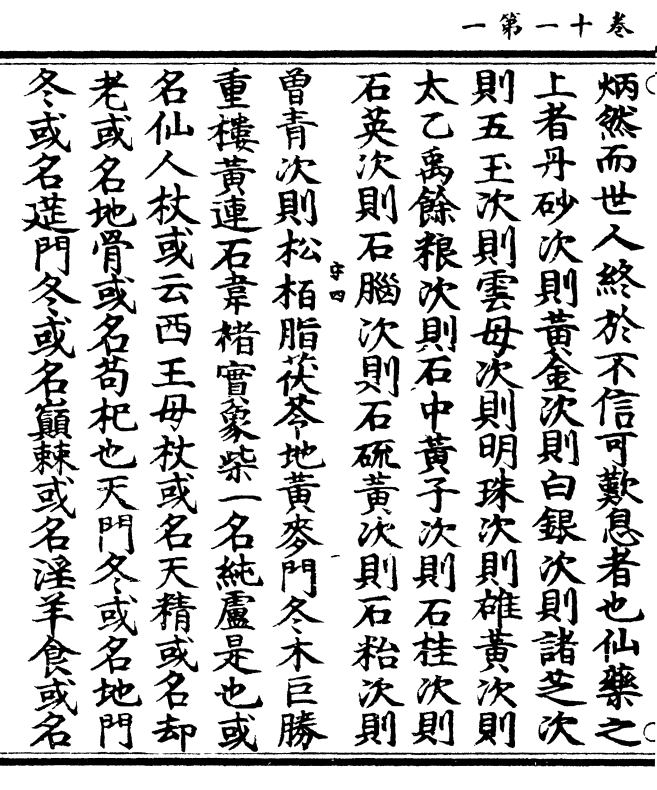 卷十一第一
炳然而世人終於不信可歎息者也仙藥之
上者丹砂次則黃金次則白銀次則諸芝次
則五玉次則雲母次則明珠次則雄黃次則
太乙禹餘粮次則石中黃子次則石桂次則
石英次則石腦次則石硫黃次則石粭次則
守四
曾青次則松栢脂茯苓地黃麥門冬木巨勝
重樓黃連石韋楮實象柴一名純盧是也或
名仙人杖或云西王母杖或名天精或名却
老或名地骨或名苟杞也天門冬或名地門
冬或名莚門冬或名巔棘或名淫羊食或名